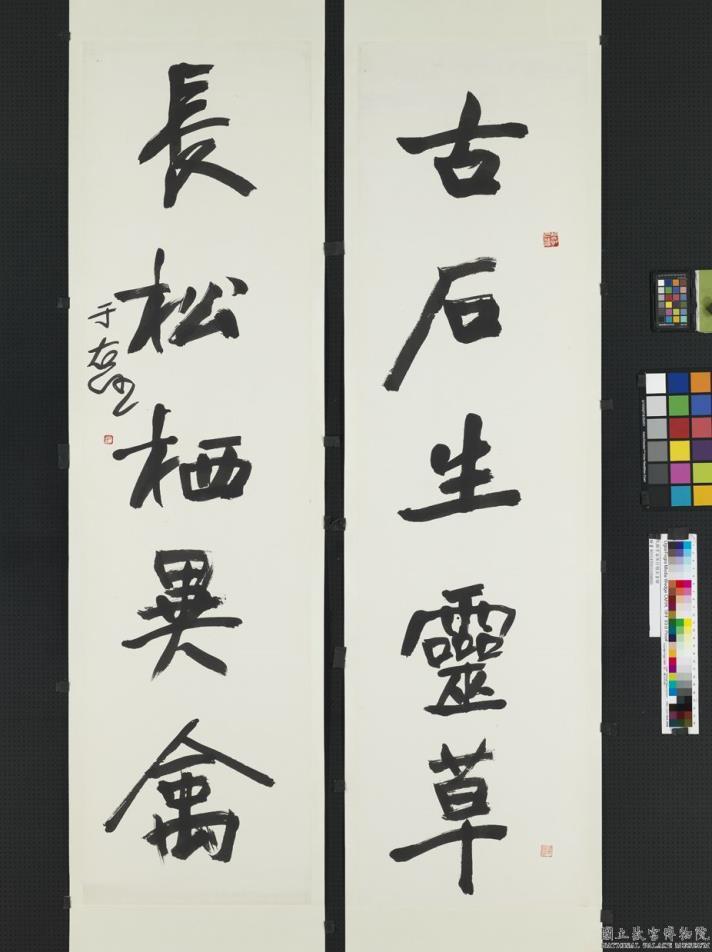 古石生靈草
長松栖異禽
于右任
國立故宮博物院
NATIONAL PALACE MUSEUM